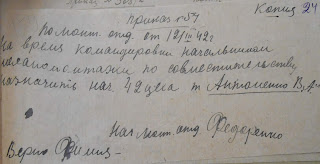 Копия 24
Приказ № 54
по монт. отд. от 12/III 42 г.
На время командировки начальником
механомонтажа по совместительству
назначить нач. 42 цеха т Антоненко В. А.
Нач монт. отд. Федоренко
Верно